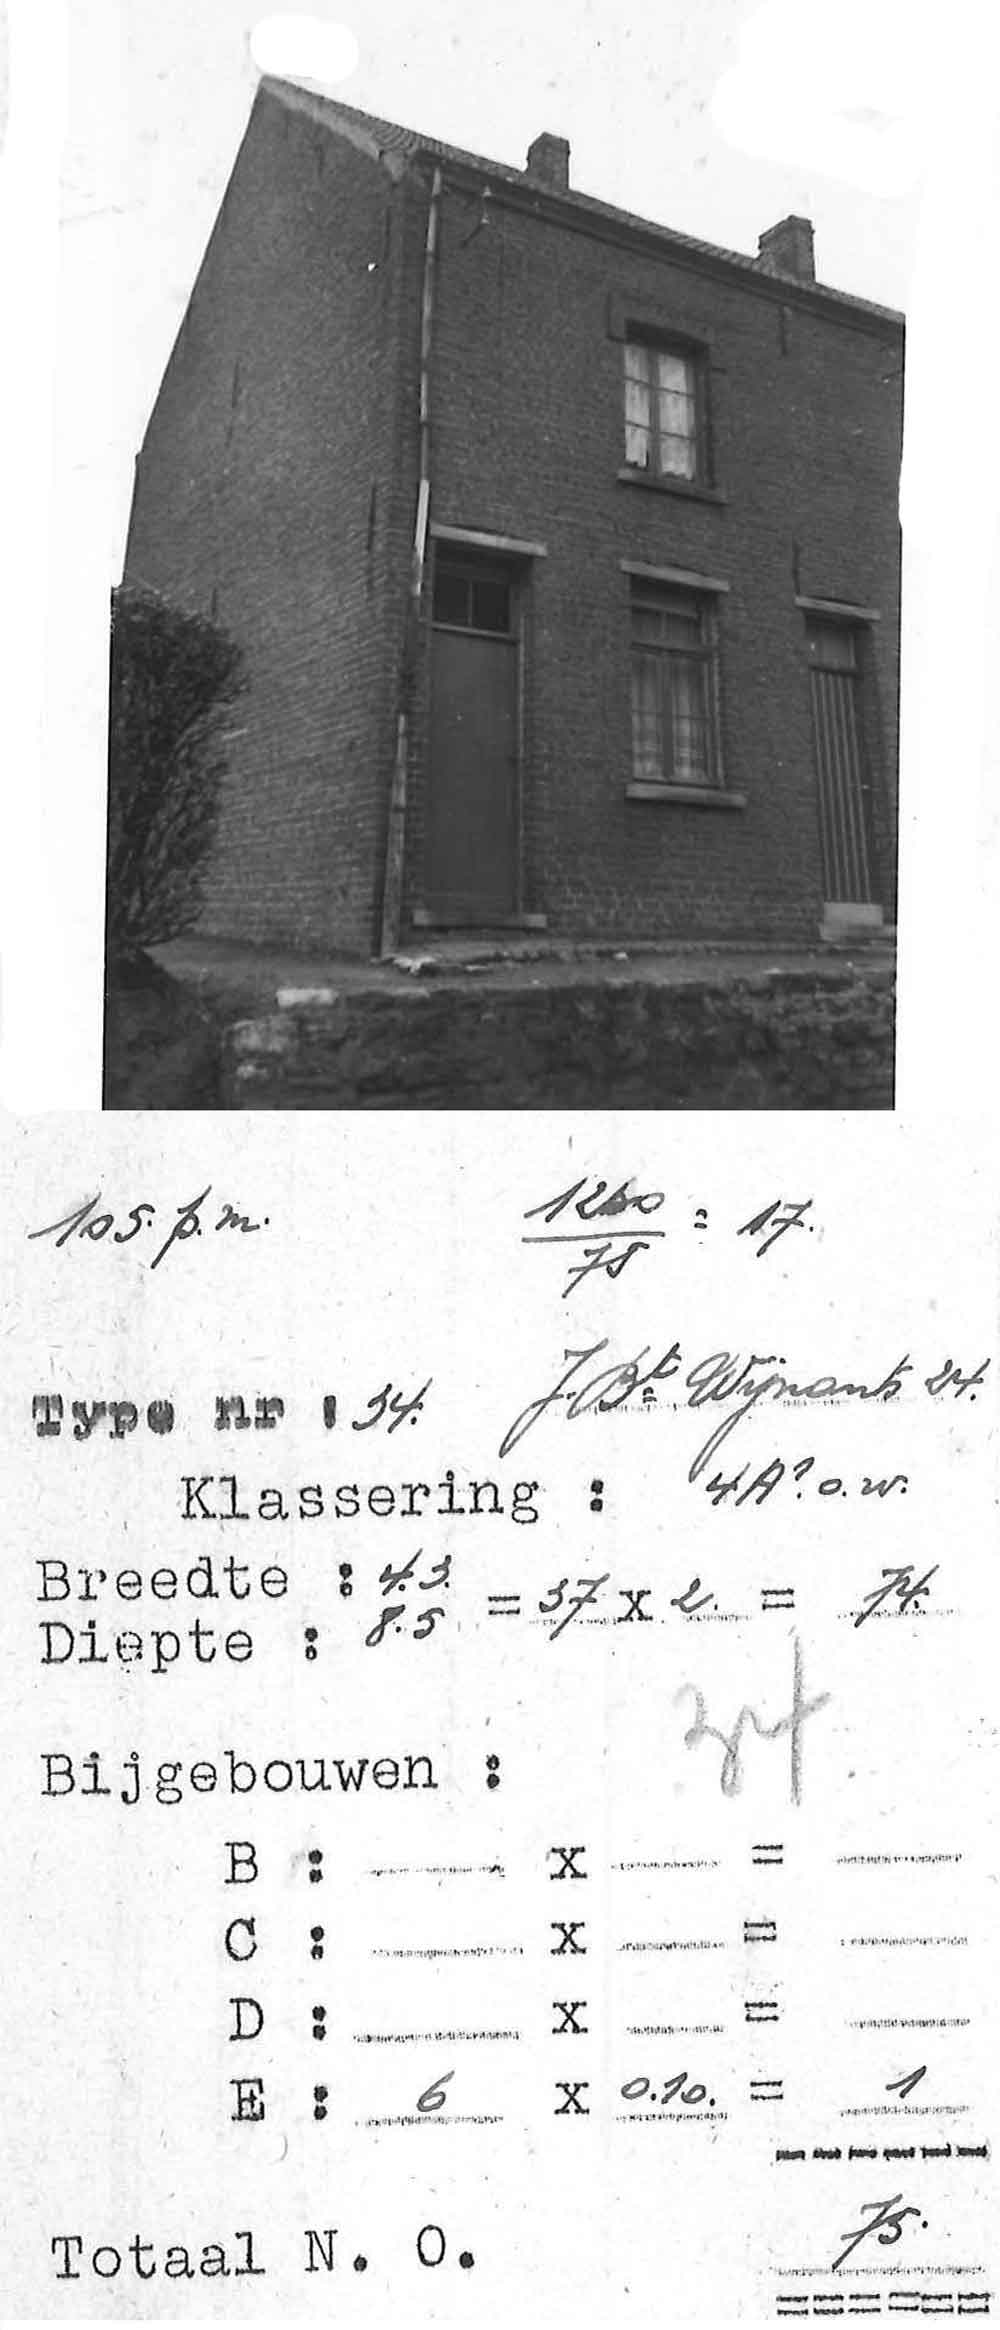 105. p.m. 1260 / 75 = 17.
Type nr : 34. J. Bt Wijnants 24.
Klassering : 4A? o.w.
Breedte : 4.3.
= 37 x 2. = 74.
Diepte : 8.5
Bijgebouwen :
B : x =
C : x =
D : x =
E : 6 x 0.10. = 1
Totaal N. O. 75.